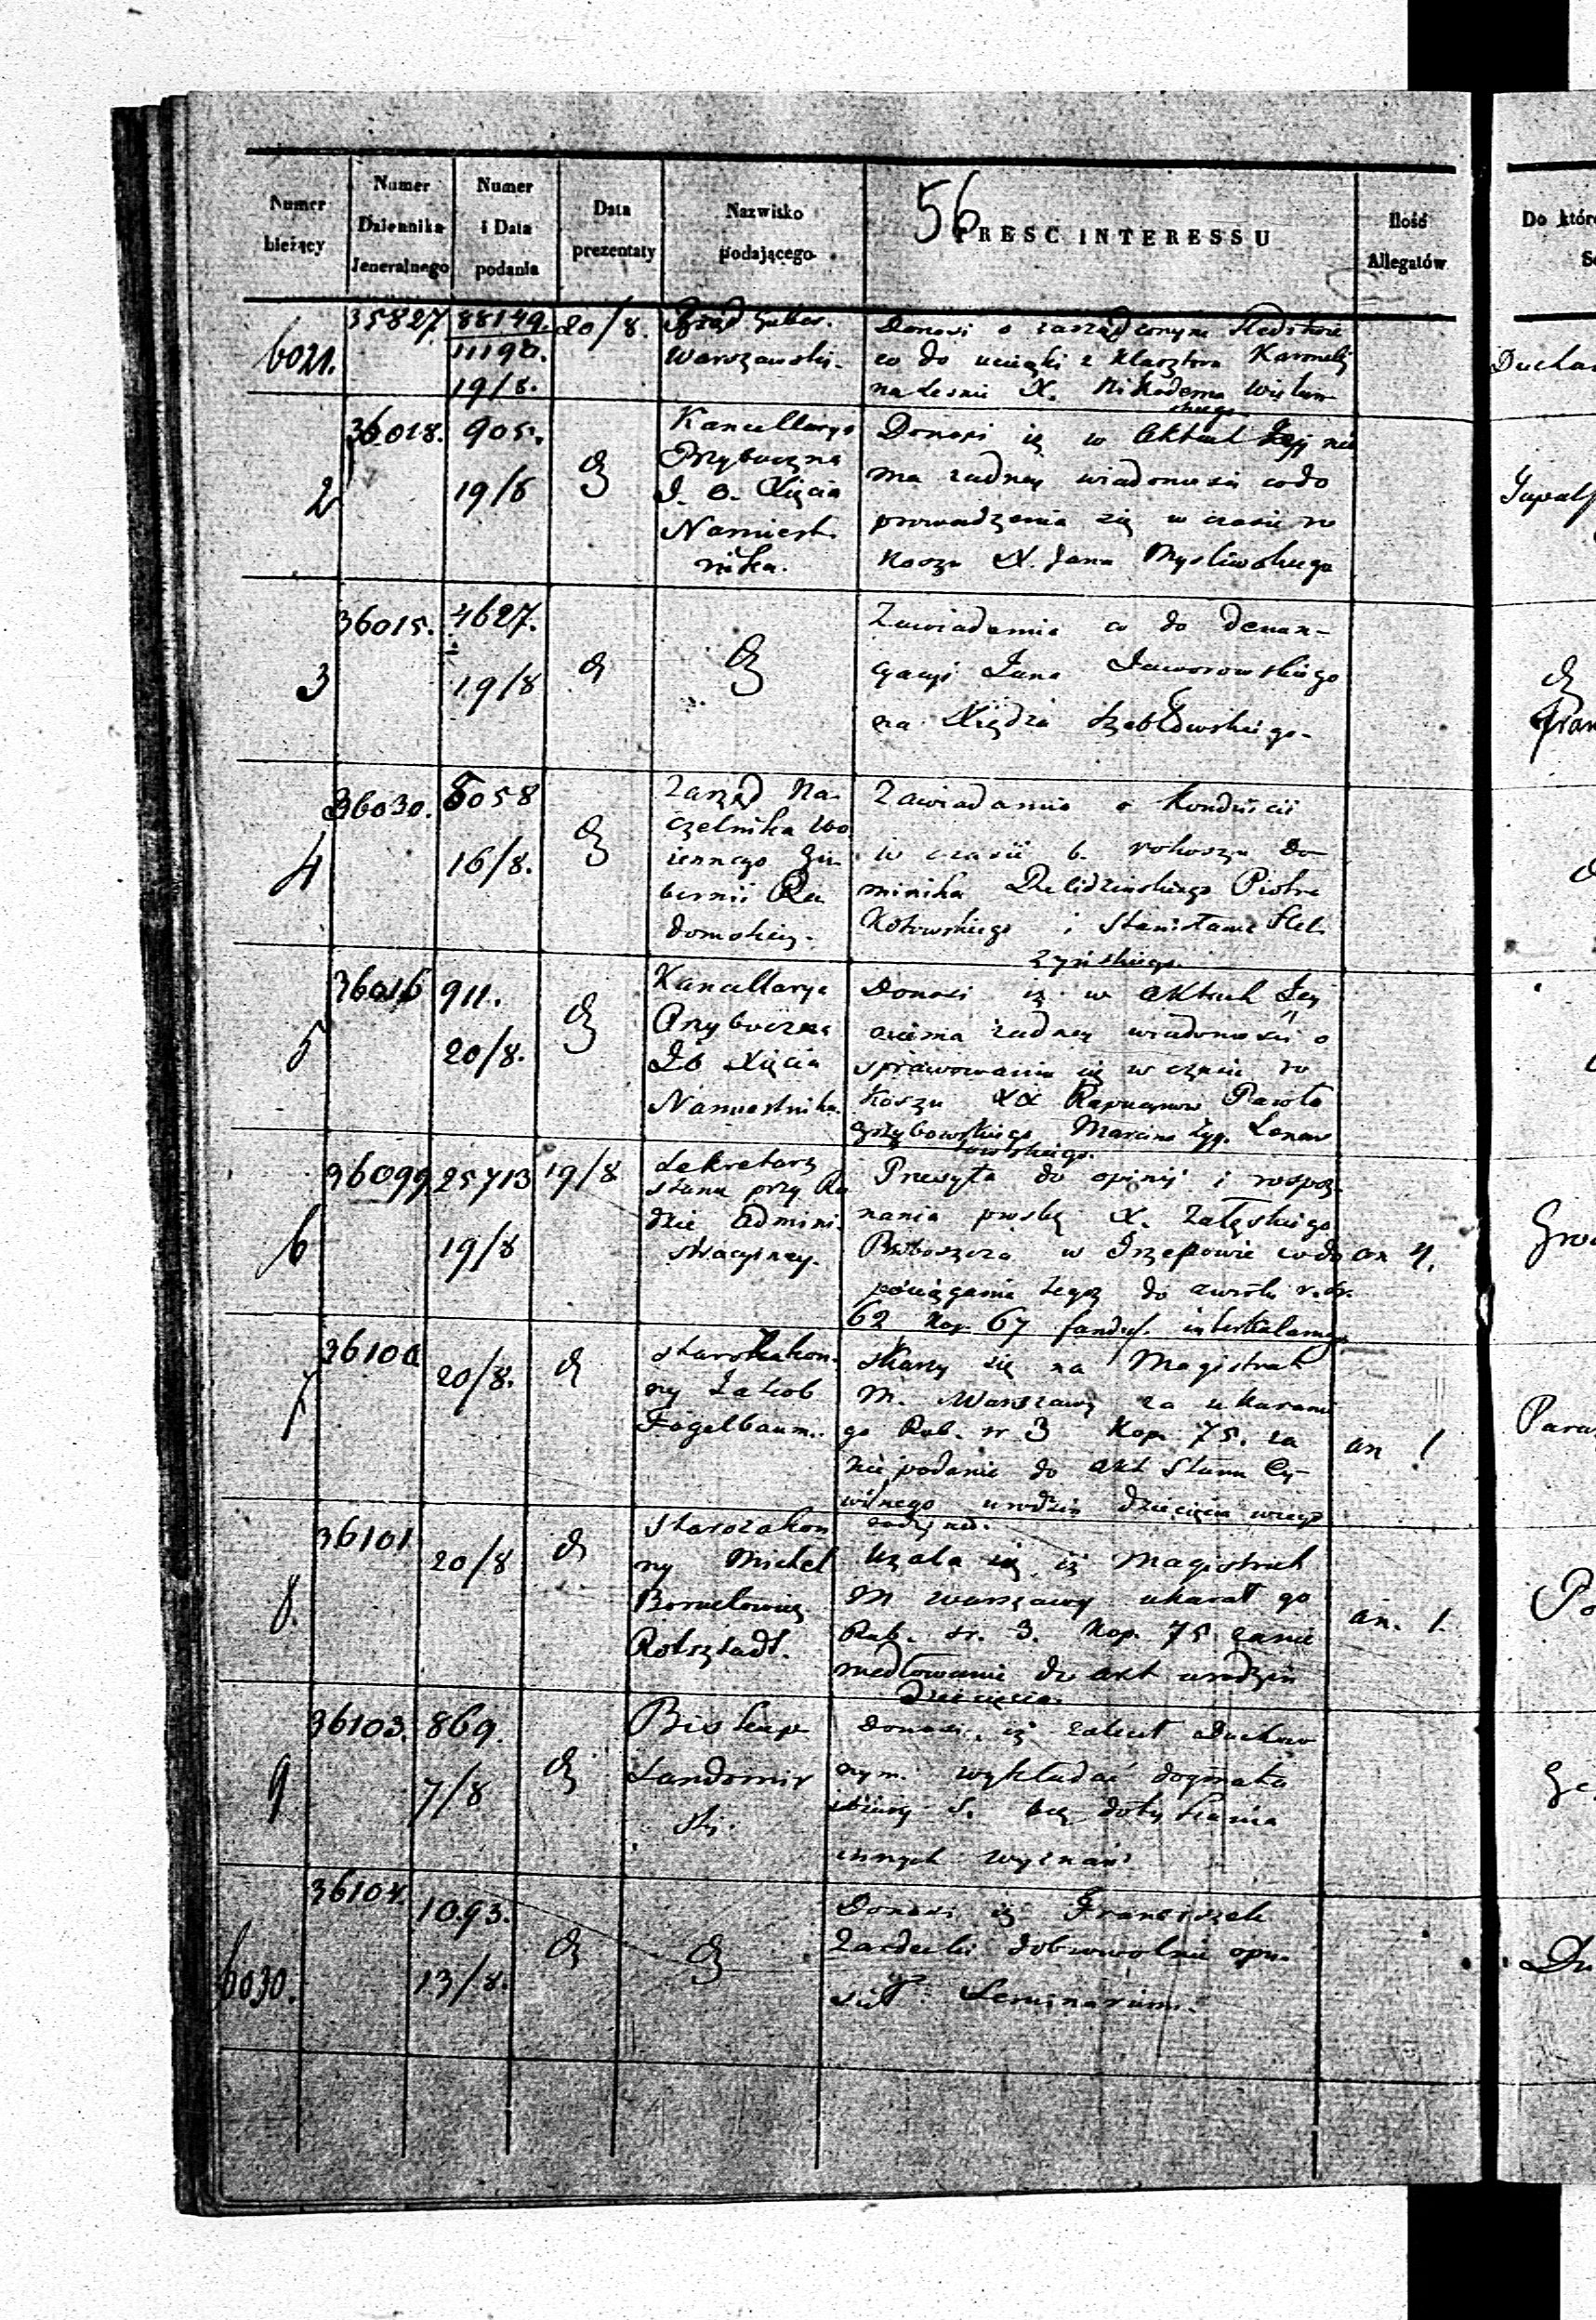 56
Numer bieżący
Numer Dziennika Jeneralnego
Numer i Data podania
Data prezentaty
Nazwisko podającego
TRESC INTERESSU
Ilość Allegatów
Do któr
6021.
35827
88149
11190.
19/8.
20/8.
Rząd Guber.
Warszawski.
Donosi o zarządzonym śledztwie
co do ucieczki z Klasztoru Karmelit
na Lesnie X. Nikodema
Ducha
2
36018.
905.
19/8
Kancellarya
Przyboczna
J. O. Xięcia
Namiest-
nika.
Donosi iż w Aktach Jej nie
ma żadney wiadomości co do
prowadzenia się w czasie ro
koszu X. Jana Mysliwskiego
3
36015.
4627.
19/8
Zawiadamia co do denun-
cyacyi Jana Jaworowskiego
na Xiędza
Fran
4
36030.
8058
16/8.
Zarząd Na-
czelnika Wo
iennego Gu-
bernii Ra
domskiey.
Zawiadamia o Konduicie
w czasie b. rokoszu Do-
minika Piotra
Kotowskiego i Stanisława
5
36016
911.
20/8.
Kancellarya
Przyboczna
JO Xięcia
Namiestnika.
Donosi iż w Aktach Jey
niema żadney wiadomości o
sprawowaniu się w czasie ro
koszu XX Kapucynów Pawła
Grzybowskiego Marcina Zyg.
6
36099
25713
19/8
19/8
Sekretarz
Stanu przy Ra
dzie Admini-
stracyiney.
Przesyła do opinii i rozpoz-
nania prośbę X. Załęskiego
Proboszcza w co do
pociągania tegoż do zwrotu r. sr.
62 kop. 67 fundusz. interkalarnego
an 4.
7
36100
20/8.
Starozakon-
ny Jakob
Fogelbaum.
Skarży się na Magistrat
M. Warszawy za ukaranie
go Rub. sr 3 Kop. 75. za
nie podanie do akt Stanu Cy-
wilnego urodzin dziecięcia
an 1
8.
36101
20/8
Starozakon
ny Michel
Rotsztadt.
Użala się iż Magistrat
M Warszawy ukarał go
Rub. sr. 3. Kop. 75 za nie
meldowanie do akt urodzin
dziecięcia.
an. 1.
9
36103.
869.
7/8
Biskup
Sandomir
ski.
Donosi, iż zalecił Duchow
nym wykładać dogmata
wiary S. bez dotykania
innych wyznań
6030.
36104.
1093.
13/8.
Donosi iż Franciszek
Zardecki dobrowolnie opu-
ścił Seminarium.